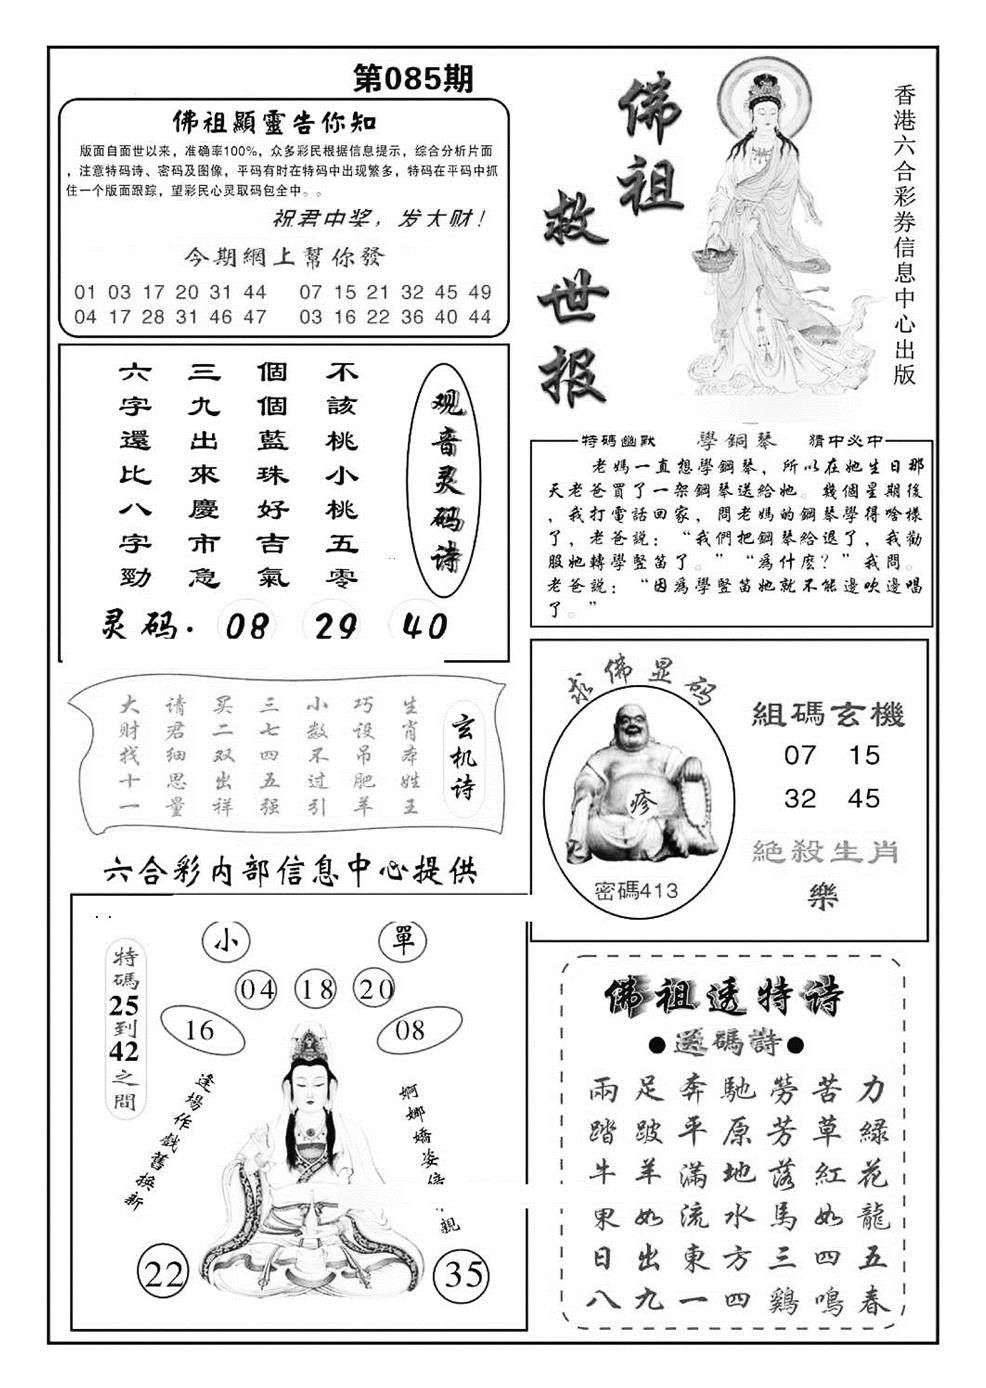 第085期
佛祖顯靈告你知
版面自面世以来，准确率100%，众多彩民根据信息提示，综合分析片面
，注意特码诗、密码及图像，平码有时在特码中出现繁多，特码在平码中抓
住一个版面跟踪，望彩民心灵取码包全中。。
祝君中奖，发大财！
今期網上幫你發
01 03 17 20 31 44　07 15 21 32 45 49
04 17 28 31 46 47　03 16 22 36 40 44
佛祖
救世报
香港六合彩券信息中心出版
观音灵码诗
不該桃小桃五零
個個藍珠好吉氣
三九出來慶市急
六字還比八字勁
灵码.　08　29　40
特碼幽默　學銅琴　猜中必中
老媽一直想學鋼琴，所以在她生日那
天老爸買了一架鋼琴送給她。幾個星期後
，我打電話回家，問老媽的鋼琴學得啥樣
了，老爸説：“我們把鋼琴給退了，我勸
服她轉學竪笛了。”“爲什麽？”我問。
老爸説：“因爲學竪笛她就不能邊吹邊唱
了。”
玄机诗
生肖本姓王
巧设吊肥羊
小数不过引
三七四五强
买二双出祥
请君细思量
大财找十一
求佛显码
疹
密碼413
組碼玄機
07　15
32　45
絕殺生肖
樂
六合彩内部信息中心提供
特碼25到42之間
小　單
04　18　20
16　08
逢場作戲舊換新
婀娜嬌姿
親
22　35
佛祖透特诗
●送碼詩●
兩足奔馳勞苦力
踏跛平原芳草綠
牛羊滿地落紅花
果如流水馬如龍
日出東方三四五
八九一四鷄鳴春